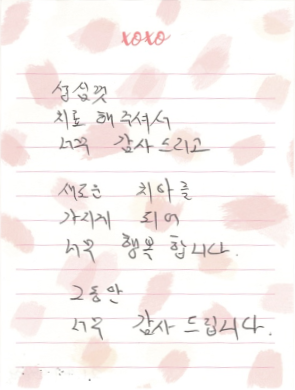 xoxo
성심껏
치료 해 주셔서
너무 감사드리고
새로운 치아를
가지게 되어
너무 행복 합니다.
그동안
너무 감사 드립니다.